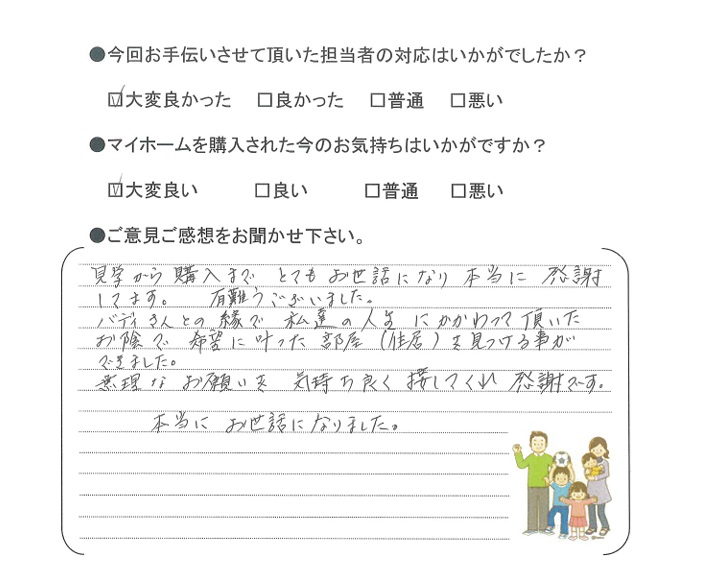 ●今回お手伝いさせて頂いた担当者の対応はいかがでしたか？
☑大変良かった □良かった □普通 □悪い
●マイホームを購入された今のお気持ちはいかがですか？
☑大変良い □良い □普通 □悪い
●ご意見ご感想をお聞かせ下さい。
見学から購入まで とてもお世話になり 本当に 感謝
してます。 有難うございました。
バディさんとの縁で 私達の人生にかかわって頂いた
お陰で 希望に叶った部屋(住居)を見つける事が
できました。
無理なお願いを 気持ち良く接してくれ 感謝です。
本当に お世話になりました。